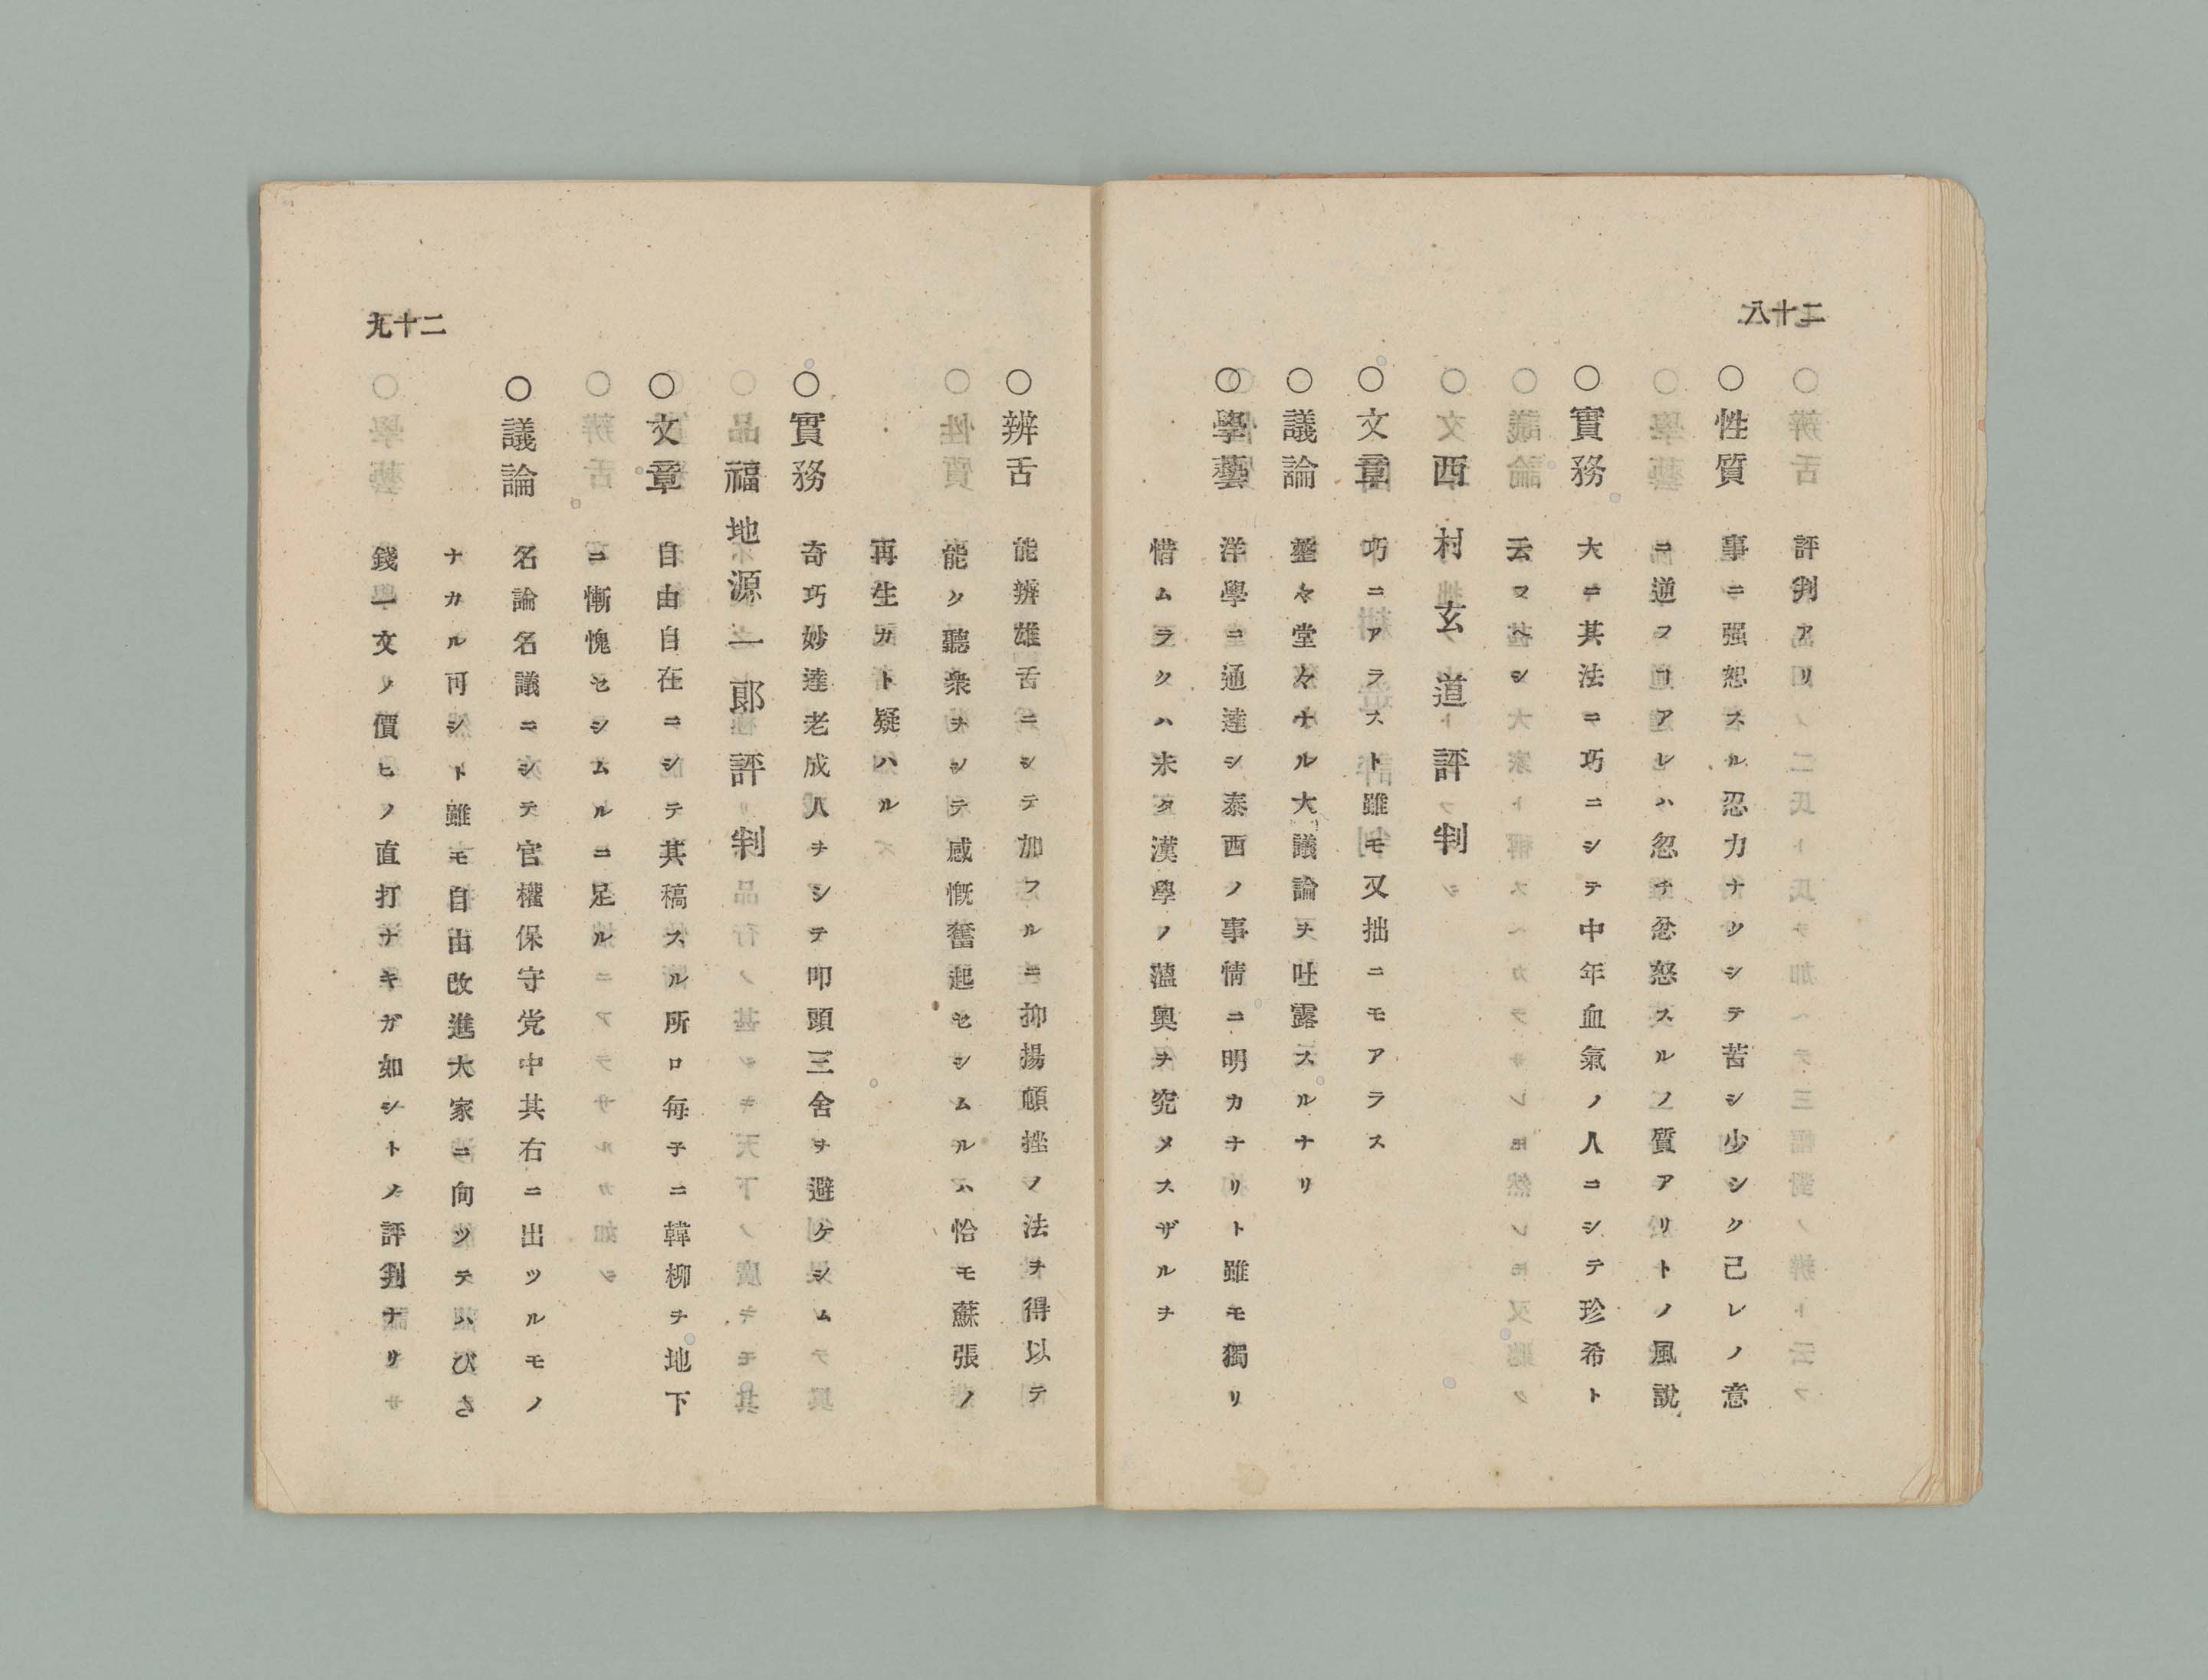 二十八
評判アリ
○性質 事ニ强恕スル忍力ナクシテ苦シ少シク己レノ意
ニ逆フコアレハ忽チ忿怒スルノ質アリトノ風説
○實務 大ニ其法ニ巧ニシテ中年血氣ノ人ニシテ珍希ト
云フヘシ
西村玄道評判
○文章 巧ニアラスト雖モ又拙ニモアラス
○議論 整々堂々ナル大議論ヲ吐露スルナリ
○學藝 洋學ニ通達シ泰西ノ事情ニ明カナリト雖モ獨リ
惜ムラクハ未タ漢學ノ薀奥ヲ究メスザルヲ
○辨舌 能辨雄舌ニシテ加フルニ抑揚頓挫ノ法ヲ得以テ
能ク聽衆ヲシテ感慨奮起セシムルハ恰モ蘇張ノ
再生カト疑ハル
○實務 奇巧妙達老成人ヲシテ叩頭三舍ヲ避ケシム
福地源一郞評判
○文章 自由自在ニシテ其稿スル所ロ毎子ニ韓柳ヲ地下
ニ慚愧セシムルニ足ル
○議論 名論名議ニシテ官權保守党中其右ニ出ツルモノ
ナカル可シト雖モ自由改進大家ニ向ツテハびさ
錢一文ノ價ヒノ直打ナキガ如シトノ評判ナリ
二十九